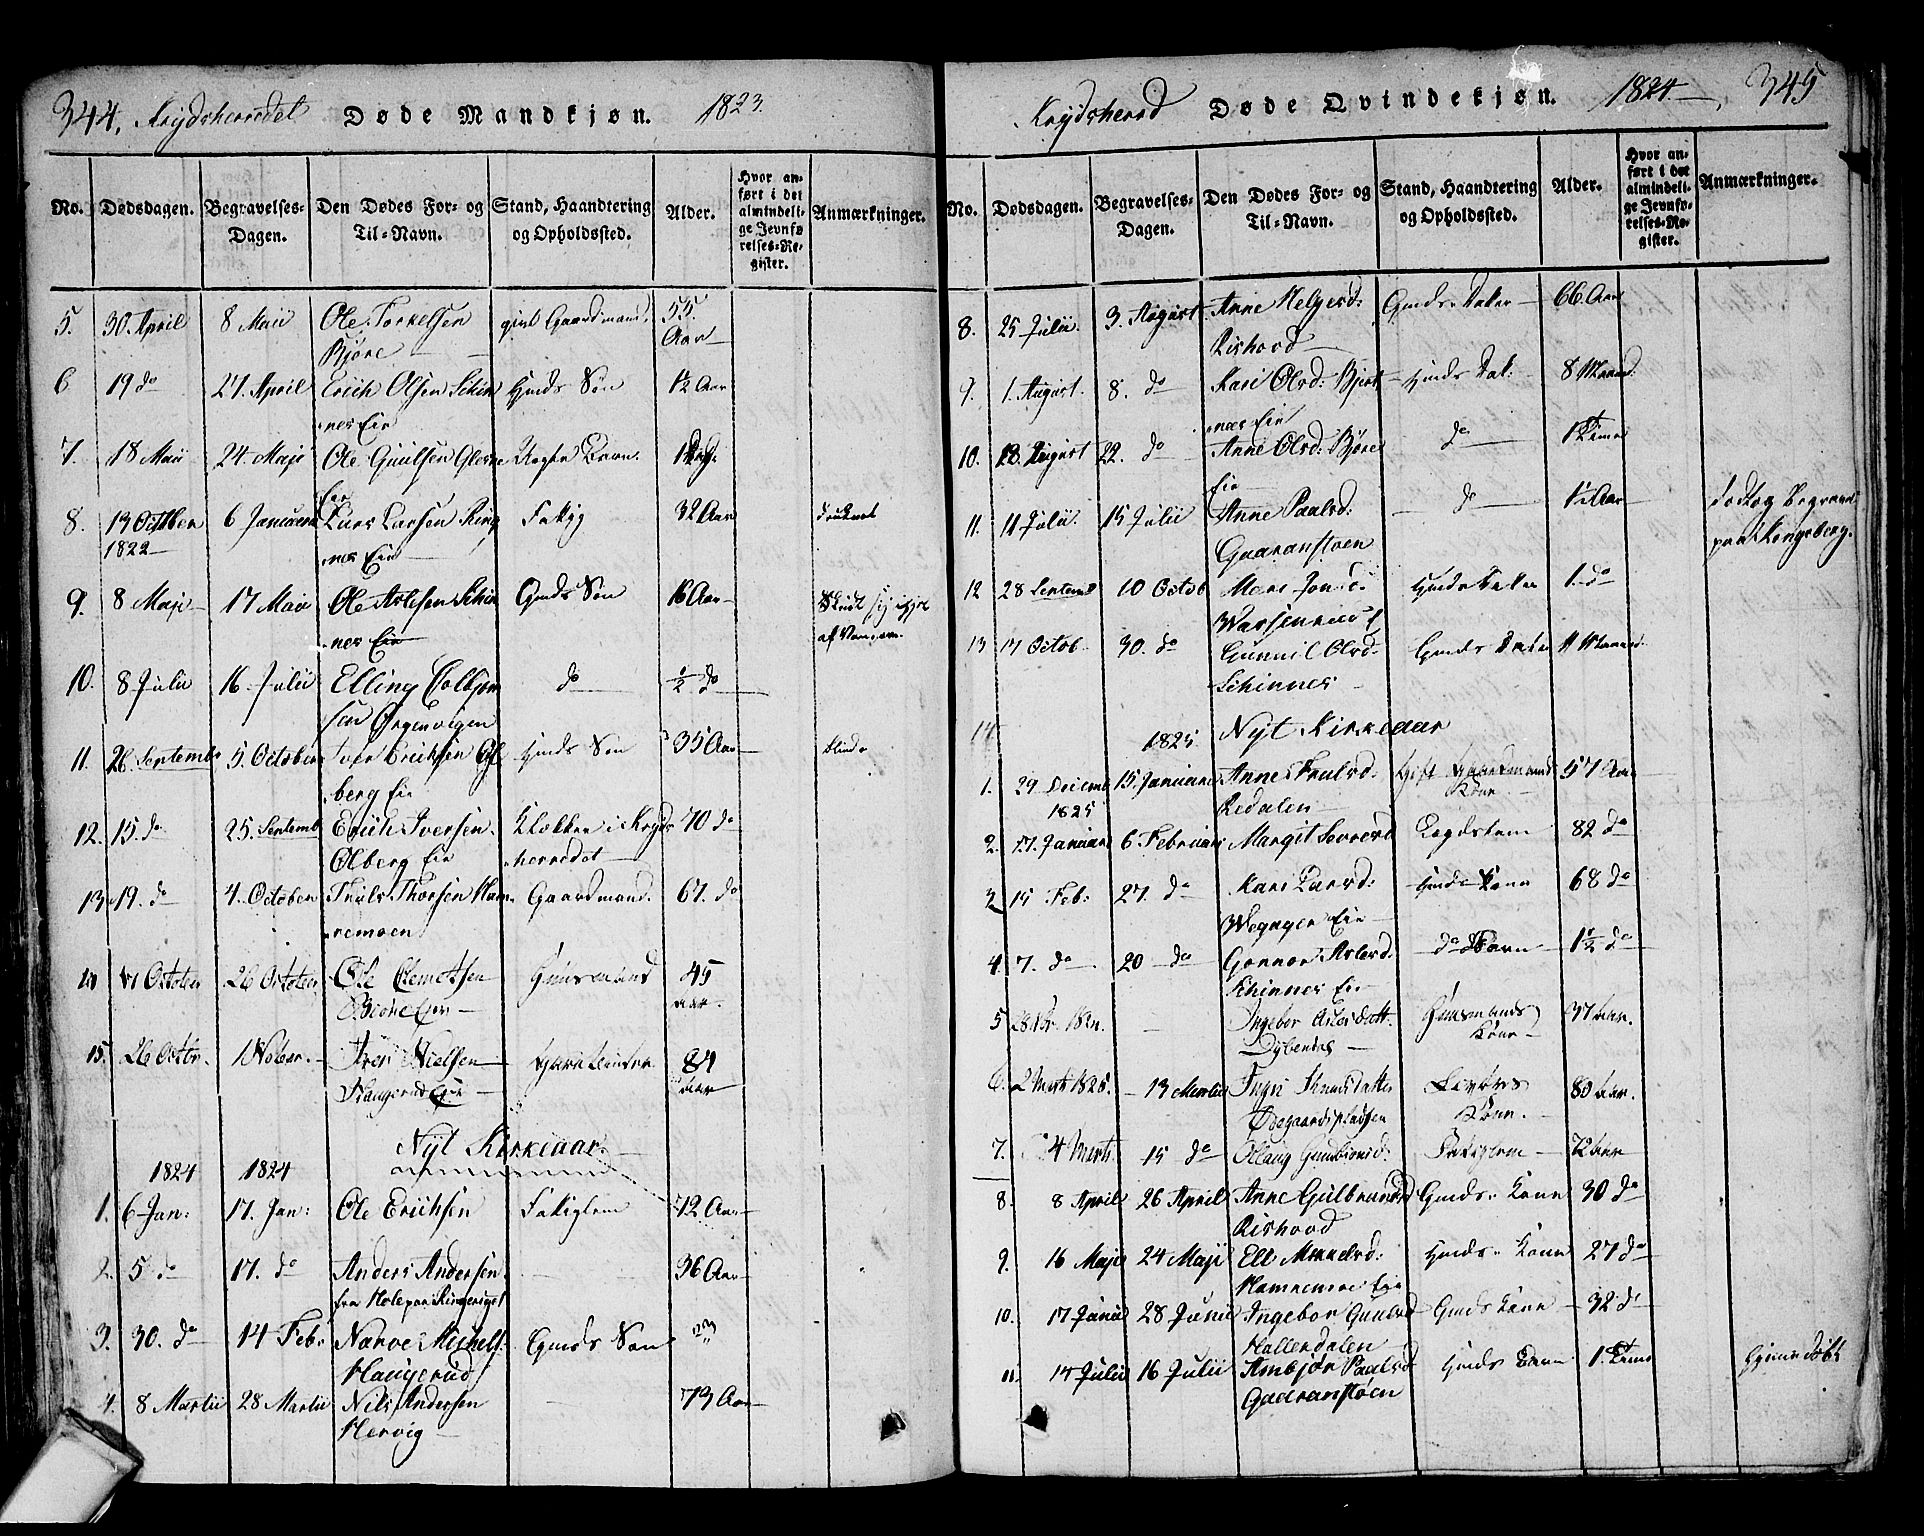 344. Krydsherredet Døde Mandkjøn. 1823.
No. Dødsdagen. Begravelses-Dagen. Den Dødes For- og Til-Navn. Stand, Haandtering og Opholdssted. Alder. Hvor anført i det almindelige Jevnførelses-Register. Anmærkninger.
5. 30. April 8 Maii Ole Torkelsen Gaardmand. 55. Aar
Bjøre
6 19 do 27. April Erich Olsen Schin Gmds Søn 1½ Aar
nes Eie
7. 18 Maii 24. Maji Ole Guulsen Glesne
Eie
8. 13 October 6 Januar Lars Larsen Ring Fattig 32 Aar druknet
1822 nes Eie
9. 8 Maji 17 Maii Ole Aslesen Schin Gmds Søn 16 Aar
nes Eie af Vangen.
10. 8 Julii 16. Julii Elling Colbjørn do ½ do
sen Ørgenvigen
11. 26. Septembr 5. October Iver Erichsen Ol Gmds Søn 35 Aar blind
berg Eie
12. 15. do 25. Septemb Erich Iversen Klokker i Kryds 70 do
Olberg Eie herredet
13. 19. do 4. October Truls Thorsen Ham Gaardmand. 67. do
remoen
14 17 October 26 October Ole Clemetsen Huusmand 45
Bjøre Eie aar.
15. 26 Octbr. 1 Nobr. Iver Nielsen 84
Haugerud Eie aar
Nyt Kirkeaar
1824 1824
1. 6 Jan: 17. Jan: Ole Erichsen Fattiglem 72 Aar
2. 5 do 17. do Anders Andersen 36 Aar
fra Hole paa Ringeriget
3. 30. do 14 Feb: Narve Michels: Gmds Søn
Haugerud
4. 8 Martii 28 Martii Nils Andersen 73 Aar
Hervig
Krydsherred Døde Qvindekjøn. 1824. 345
No. Dødsdagen. Begravelses-Dagen. Den Dødes For- og Til-Navn. Stand, Haandtering og Opholdssted. Alder. Hvor anført i det almindelige Jevnførelses-Register. Anmærkninger.
8. 25 Julii. 3. August Anne Helgesd: Gmds Dater 66 Aar
Rishovd
9. 1. August. 8. do Kari Olsd: Bjert Gmds Dat: 8 Maaned.
næs Eie
10. 18 August 22. do Anne Olsd: Bjøre do 1 Time
Eie
11. 11 Julii. 15 Julii Anne Paalsd: do 1½ Aar død og begravet
Gaaranstøen paa Kongsberg.
12 28 Septemb 10 Octob Mari Jonsd: Gmds Dater 1. do
13 17 Octob. 30. do Gunnil Olsd: Gmds Dater 11 Maaned.
Schinnes
14 1825 Nyt Kirkeaar
1. 29. Decemb 15. Januar Anne Trulsd. Gift Gaardmands 57 Aar
1825 Redalen Kone
2. 17. Januar 6 Februar Margit Sevresd Lægdslem 82 do
3 15 Feb: 27. do Kari Larsd: Gmds Kone 68 do
Eie
4. 7. do 20 do Gonnor Aslesd. do Barn 1½ do
Schinnes Eie
5 Ingebor Aslesdatt. Huusmands 37 aar.
Kone
6. 2 Marts 1825. 13 Martii Ingri Knudsdatter 80 aar.
Ødegaardspladsen Kone.
7. 4 Marts. 15 do Olaug Gundbiørnsd: Fattiglem 72 aar
8. 8 April 26 April Anne Gulbrandsd Gmds. Kone 30 do
Rishovd
9. 16 Maji 24 Maji Eli Mikkelsd: Gmds. Kone 27 do
Hamremoe Eie
10. 17 Junii 28 Junii Ingebor Guulsd Gmds Kone 32 do
Hallendalen
11. 14 Julii 16 Julii Ambjør Paalsd Gmds Barn 1. Time Hjemmedøbt
Gaaranstøen